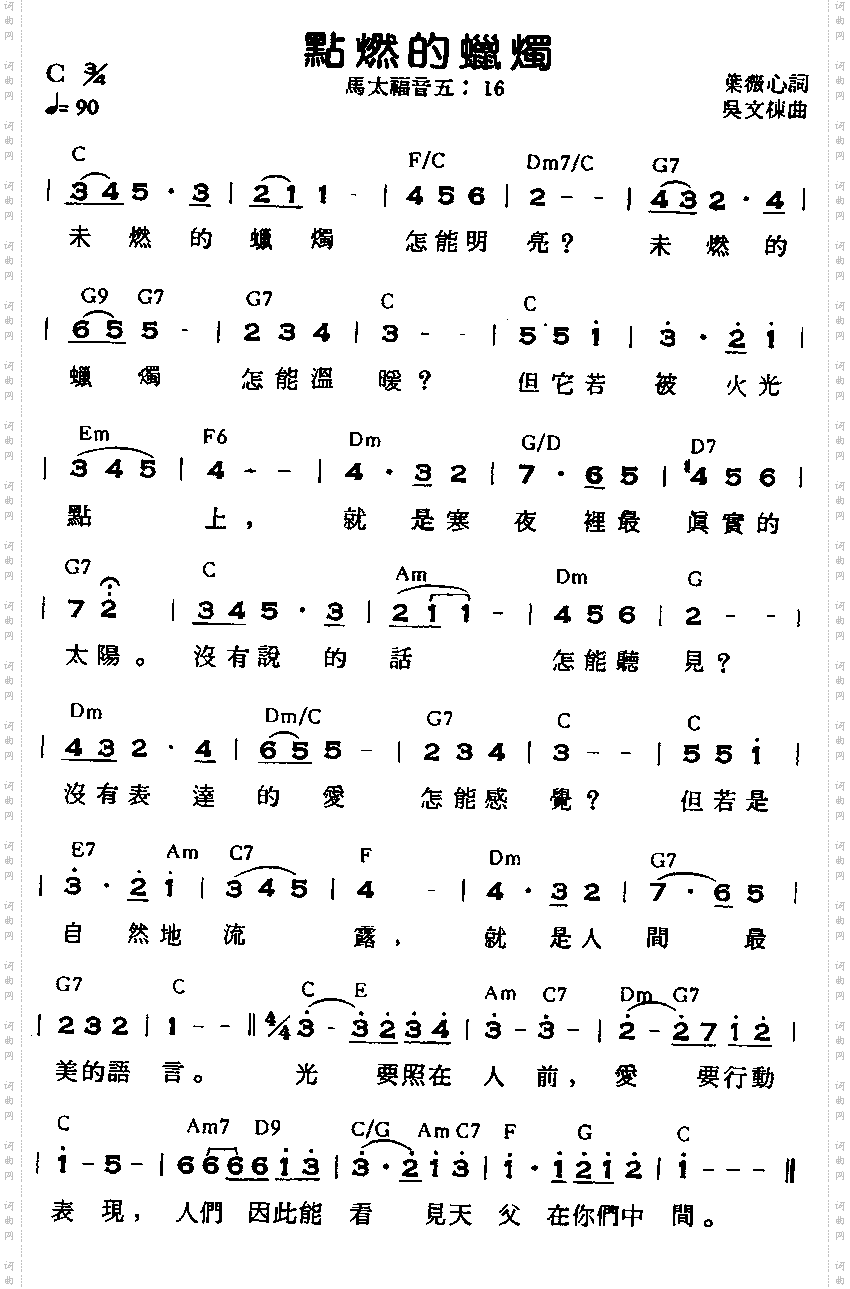 點燃的蠟燭
C 3/4
馬太福音五：16
葉薇心詞
♩= 90
吳文棟曲
C F/C Dm7/C G7
| 3 4 5 · 3 | 2 1 1 - | 4 5 6 | 2 - - | 4 3 2 · 4 |
未燃的蠟燭 怎能明亮？ 未燃的
G9 G7 G7 C C
| 6 5 5 - | 2 3 4 | 3 - - | 5 5 i | 3 · 2 i |
蠟燭 怎能溫暖？ 但它若 被火光
Em F6 Dm G/D D7
| 3 4 5 | 4 - - | 4 · 3 2 | 7 · 6 5 | #4 5 6 |
點 上， 就是寒夜裡最眞實的
G7 C Am Dm G
| 7 2 | 3 4 5 · 3 | 2 1 1 - | 4 5 6 | 2 - - |
太陽。沒有說的話 怎能聽見？
Dm Dm/C G7 C C
| 4 3 2 · 4 | 6 5 5 - | 2 3 4 | 3 - - | 5 5 i |
沒有表達的愛 怎能感覺？ 但若是
E7 Am C7 F Dm G7
| 3 · 2 i | 3 4 5 | 4 - | 4 · 3 2 | 7 · 6 5 |
自然地流 露， 就是人間最
G7 C C E Am C7 Dm G7
| 2 3 2 | 1 - - || 4/4 3 - 3 2 3 4 | 3 - 3 - | 2 - 2 7 i 2 |
美的語言。 光 要照在人前，愛 要行動
C Am7 D9 C/G Am C7 F G C
| i - 5 - | 6 6 6 6 i 3 | 3 · 2 i 3 | i · i 2 i 2 | i - - - ||
表現，人們因此能看 見天父在你們中間。
词曲网